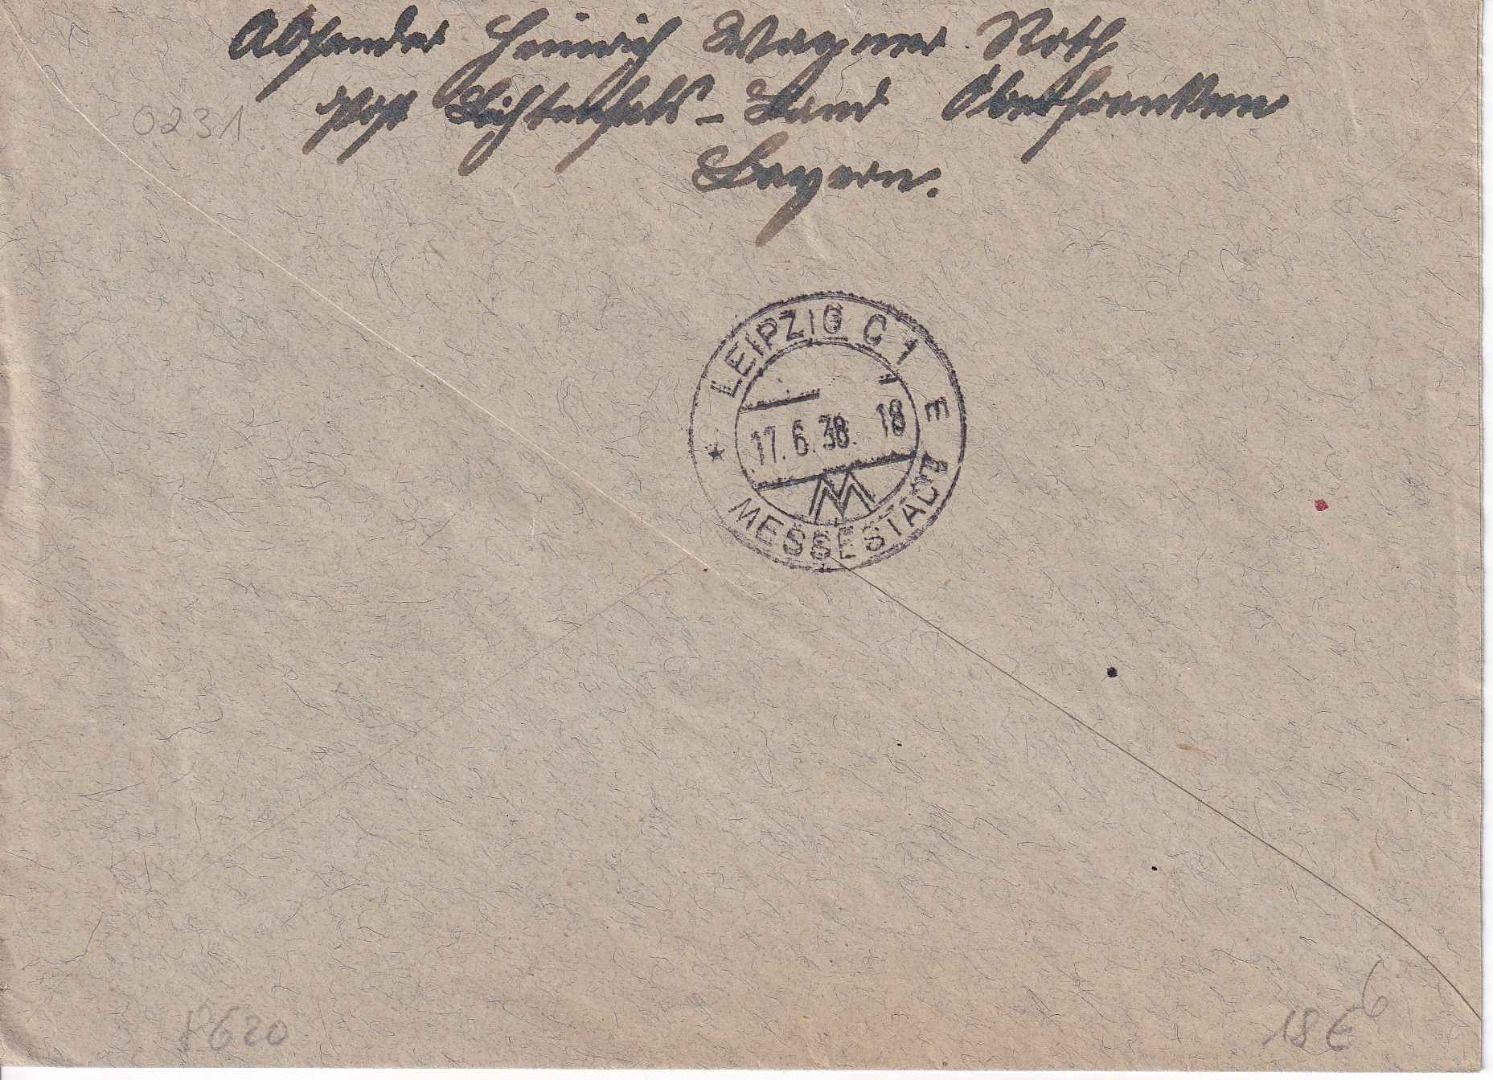 Absender Heinrich Wagner Roth
Post Lichtenfels - Land Oberfranken
Bayern.
0231
LEIPZIG C 1
E
17.6.38. 18
M
* MESSESTADT
8620
18 €
6